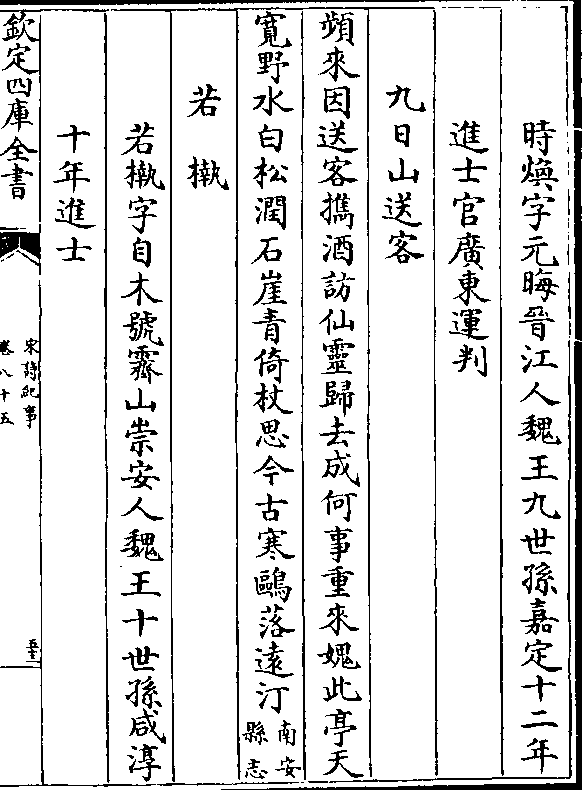 時煥字元晦晉江人魏王九世孫嘉定十二年
進士官廣東運判
九日山送客
頻來因送客攜酒訪仙靈歸去成何事重來媿此亭天
寛野水白松潤石崖青倚杖思今古寒鷗落遠汀南安
縣志
若檝
若檝字自木號霽山崇安人魏王十世孫咸淳
十年進士
欽定四庫全書
宋詩紀事
卷八十五